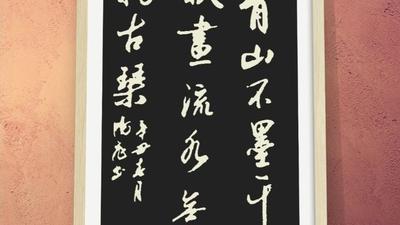 青山不墨千
秋畫流水無
古琴
辛丑春月